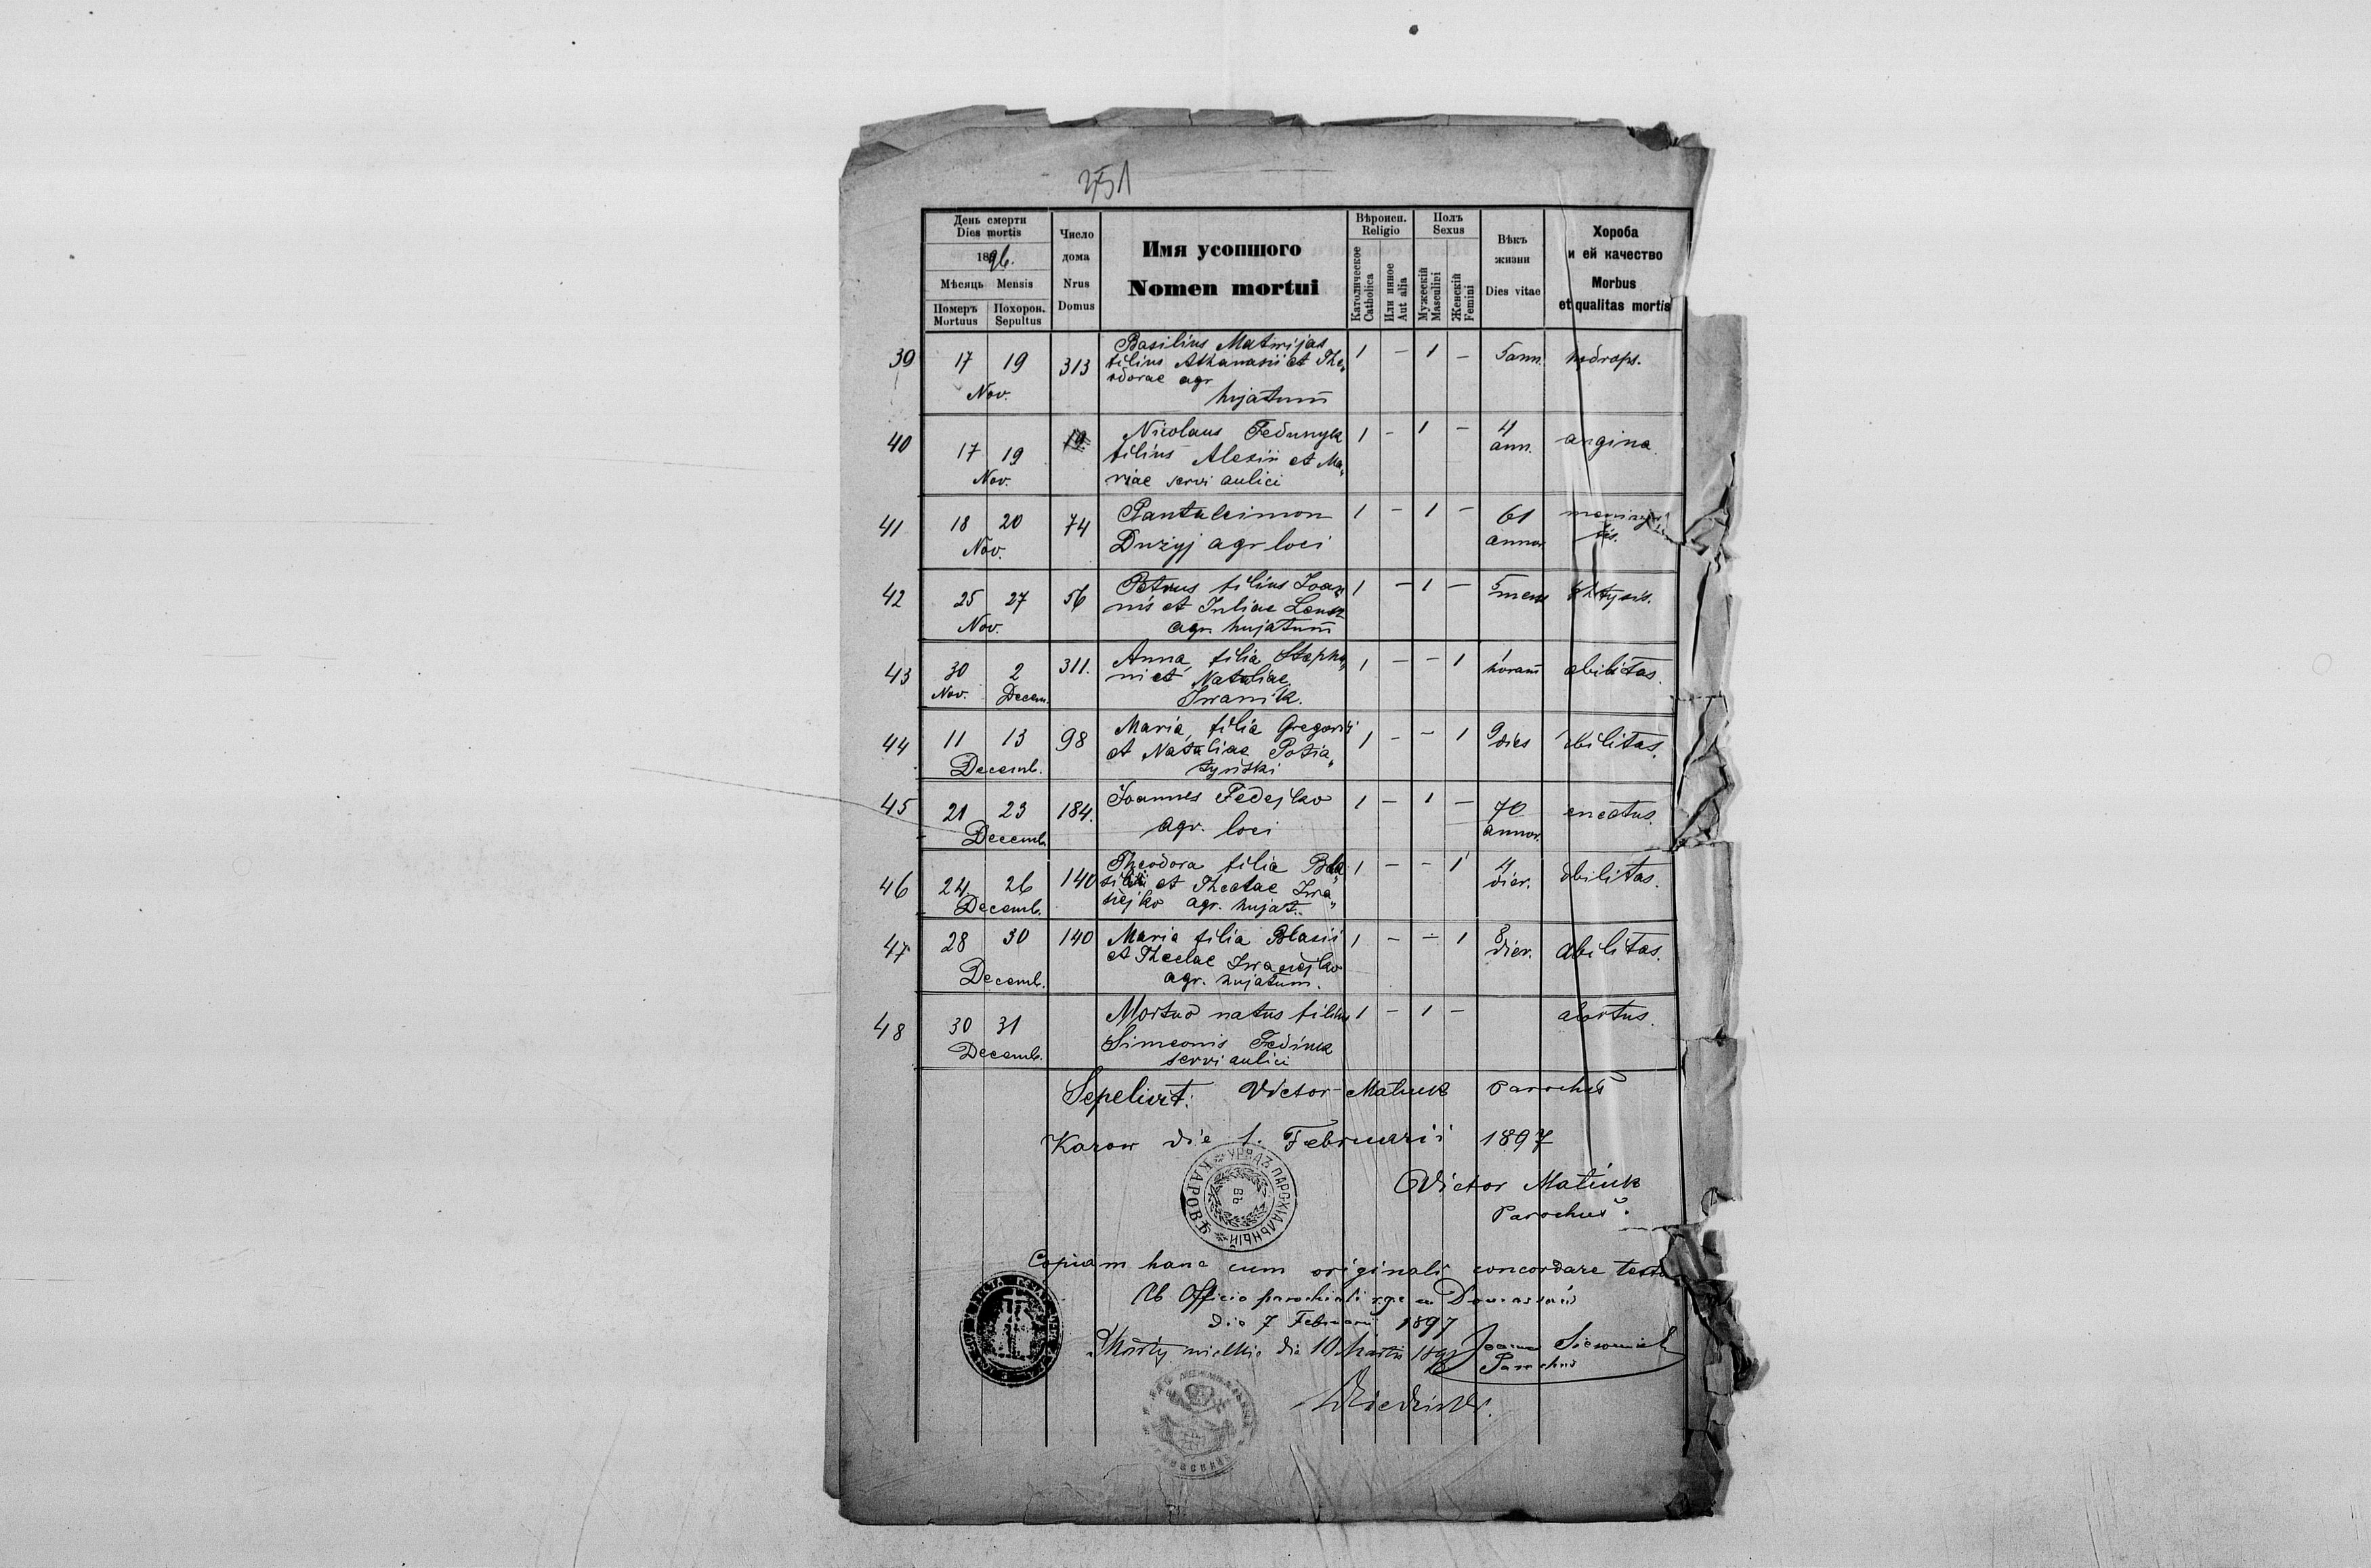 251
День смерти
Dies mortis
1896.
Мѣсяць Mensis
Померъ Похорон.
Mortuus Sepultus
Число
дома
Nrus
Domus
Имя усопшого
Nomen mortui
Вѣроисп.
Religio
Католическое
Catholica
Или инное
Aut alia
Полъ
Sexus
Мужескій
Masculini
Женскій
Femini
Вѣкъ
жизни
Dies vitae
Хороба
и ей качество
Morbus
et qualitas mortis
39 17 19 Nov. 313
Basilius Matwijas
filius Athanasii et The„
odorae agr
hujatum
1 – 1 – 5 ann. hydrops.
40 17 19 Nov. 19
Nicolaus Fedunyk
filius Alexii et Ma„
riae servi aulici
1 – 1 – 4 ann. angina.
41 18 20 Nov. 74
Pantaleimon
Dużyj agr loci
1 – 1 – 61 annor
42 25 27 Nov. 56
Petrus filius Joan
nis et Juliae
agr. hujatum
1 – 1 – 5 mens
43 30 Nov. 2 Decem. 311.
Anna, filia Stepha„
ni et Nataliae
Iwanik.
1 – – 1 1 horam debilitas.
44 11 13 Decemb. 98
Maria, filia Gregorii
et Nataliae Potia„
tyński
1 – – 1 9 dies debilitas.
45 21 23 Decemb. 184.
Joannes Fedejko
agr. loci
1 – 1 – 70 annor.
46 24 26 Decemb. 140
Theodora filia Bla„
sii et Theclae Iwa„
siejko agr. hujat.
1 – – 1 4 dier. debilitas.
47 28 30 Decemb. 140
Maria filia Blasii
et Theclae Iwasiejko
agr. hujatum.
1 – – 1 8 dier. debilitas.
48 30 31 Decemb.
Mortuo natus filius
Simeonis Fedink
servi aulici
1 – 1 – abortus.
Sepelivit: Victor Matiuk Parochus
Karow die 1. Februarii 1897
УРЯДЪ ПАРОХІАЛЬНЫЙ
ВЪ
КАРОВѢ
Victor Matiuk
Parochus.
Copiam hanc cum originali concordare testor
Ab Officio parochiali r.g.c.
die 7 Februarii 1897
die 10 Martii 1897 Joannes
Parochus